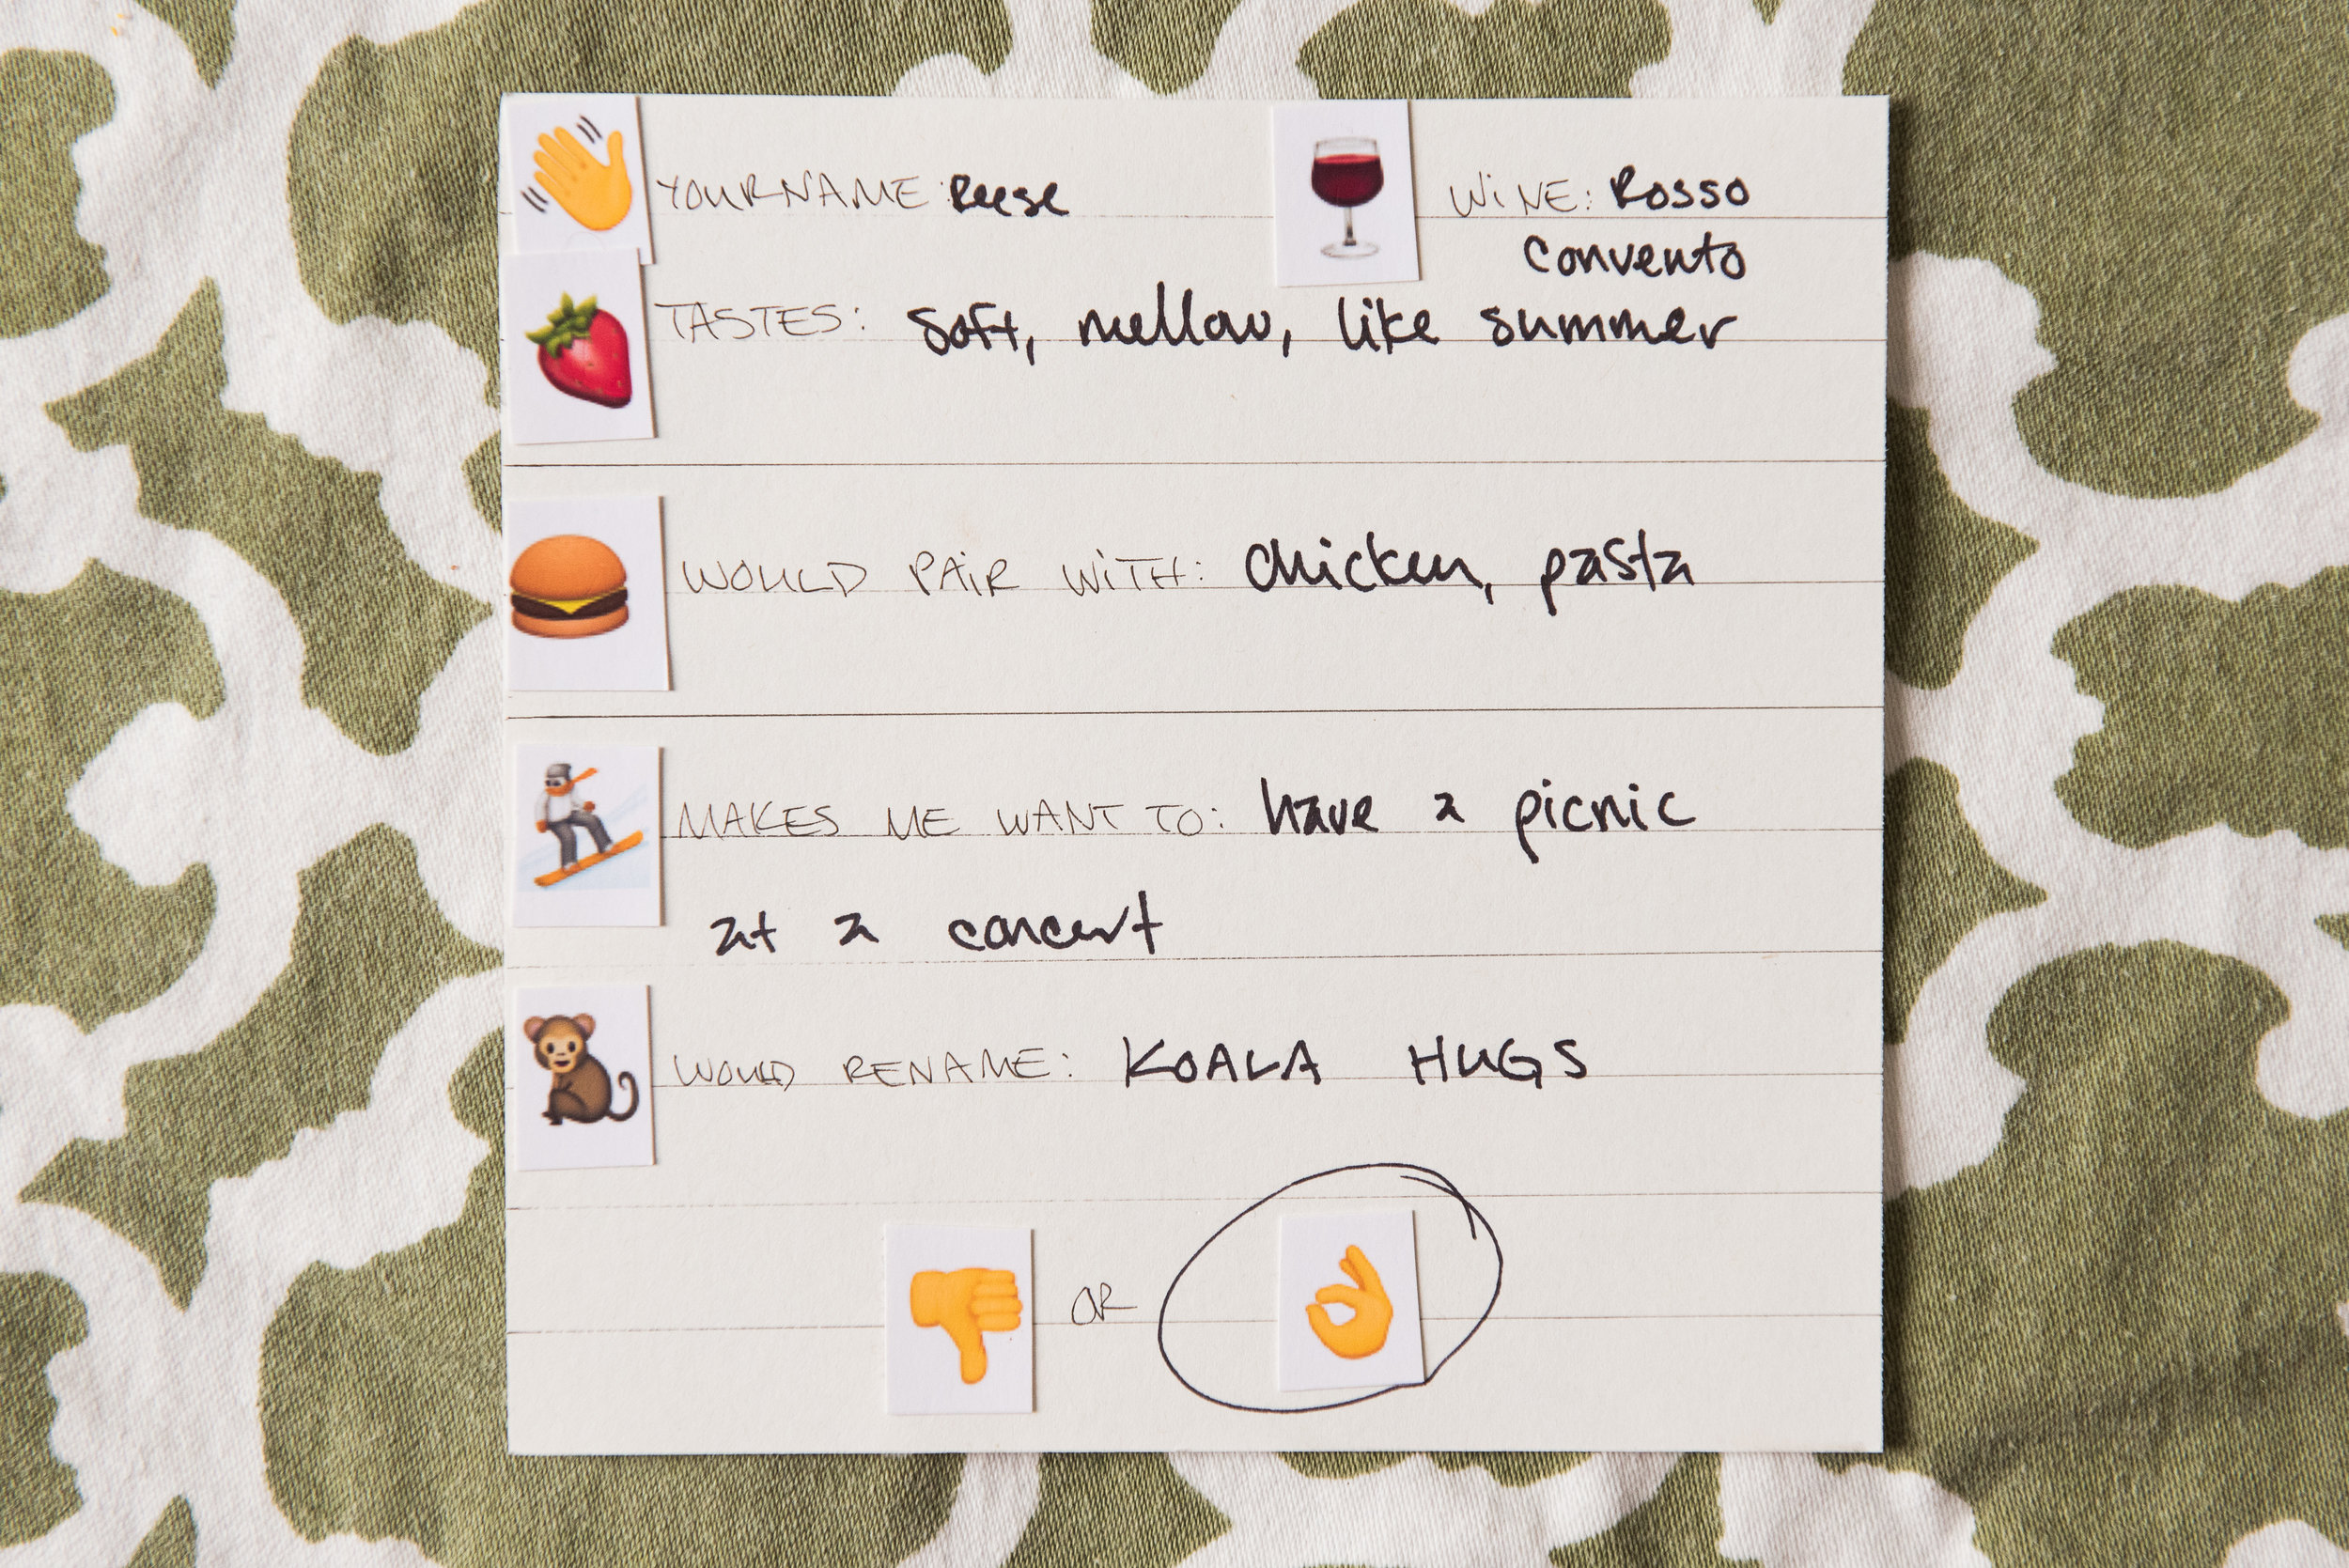 YOUR NAME: Reese
WiNE: Rosso
Convento
TASTES: Soft, mellow, like summer
WOULD PAiR WiTH: Chicken, pasta
MAKES ME WANT TO: have a picnic
at a concert
WOULD RENAME: KOALA HUGS
OR